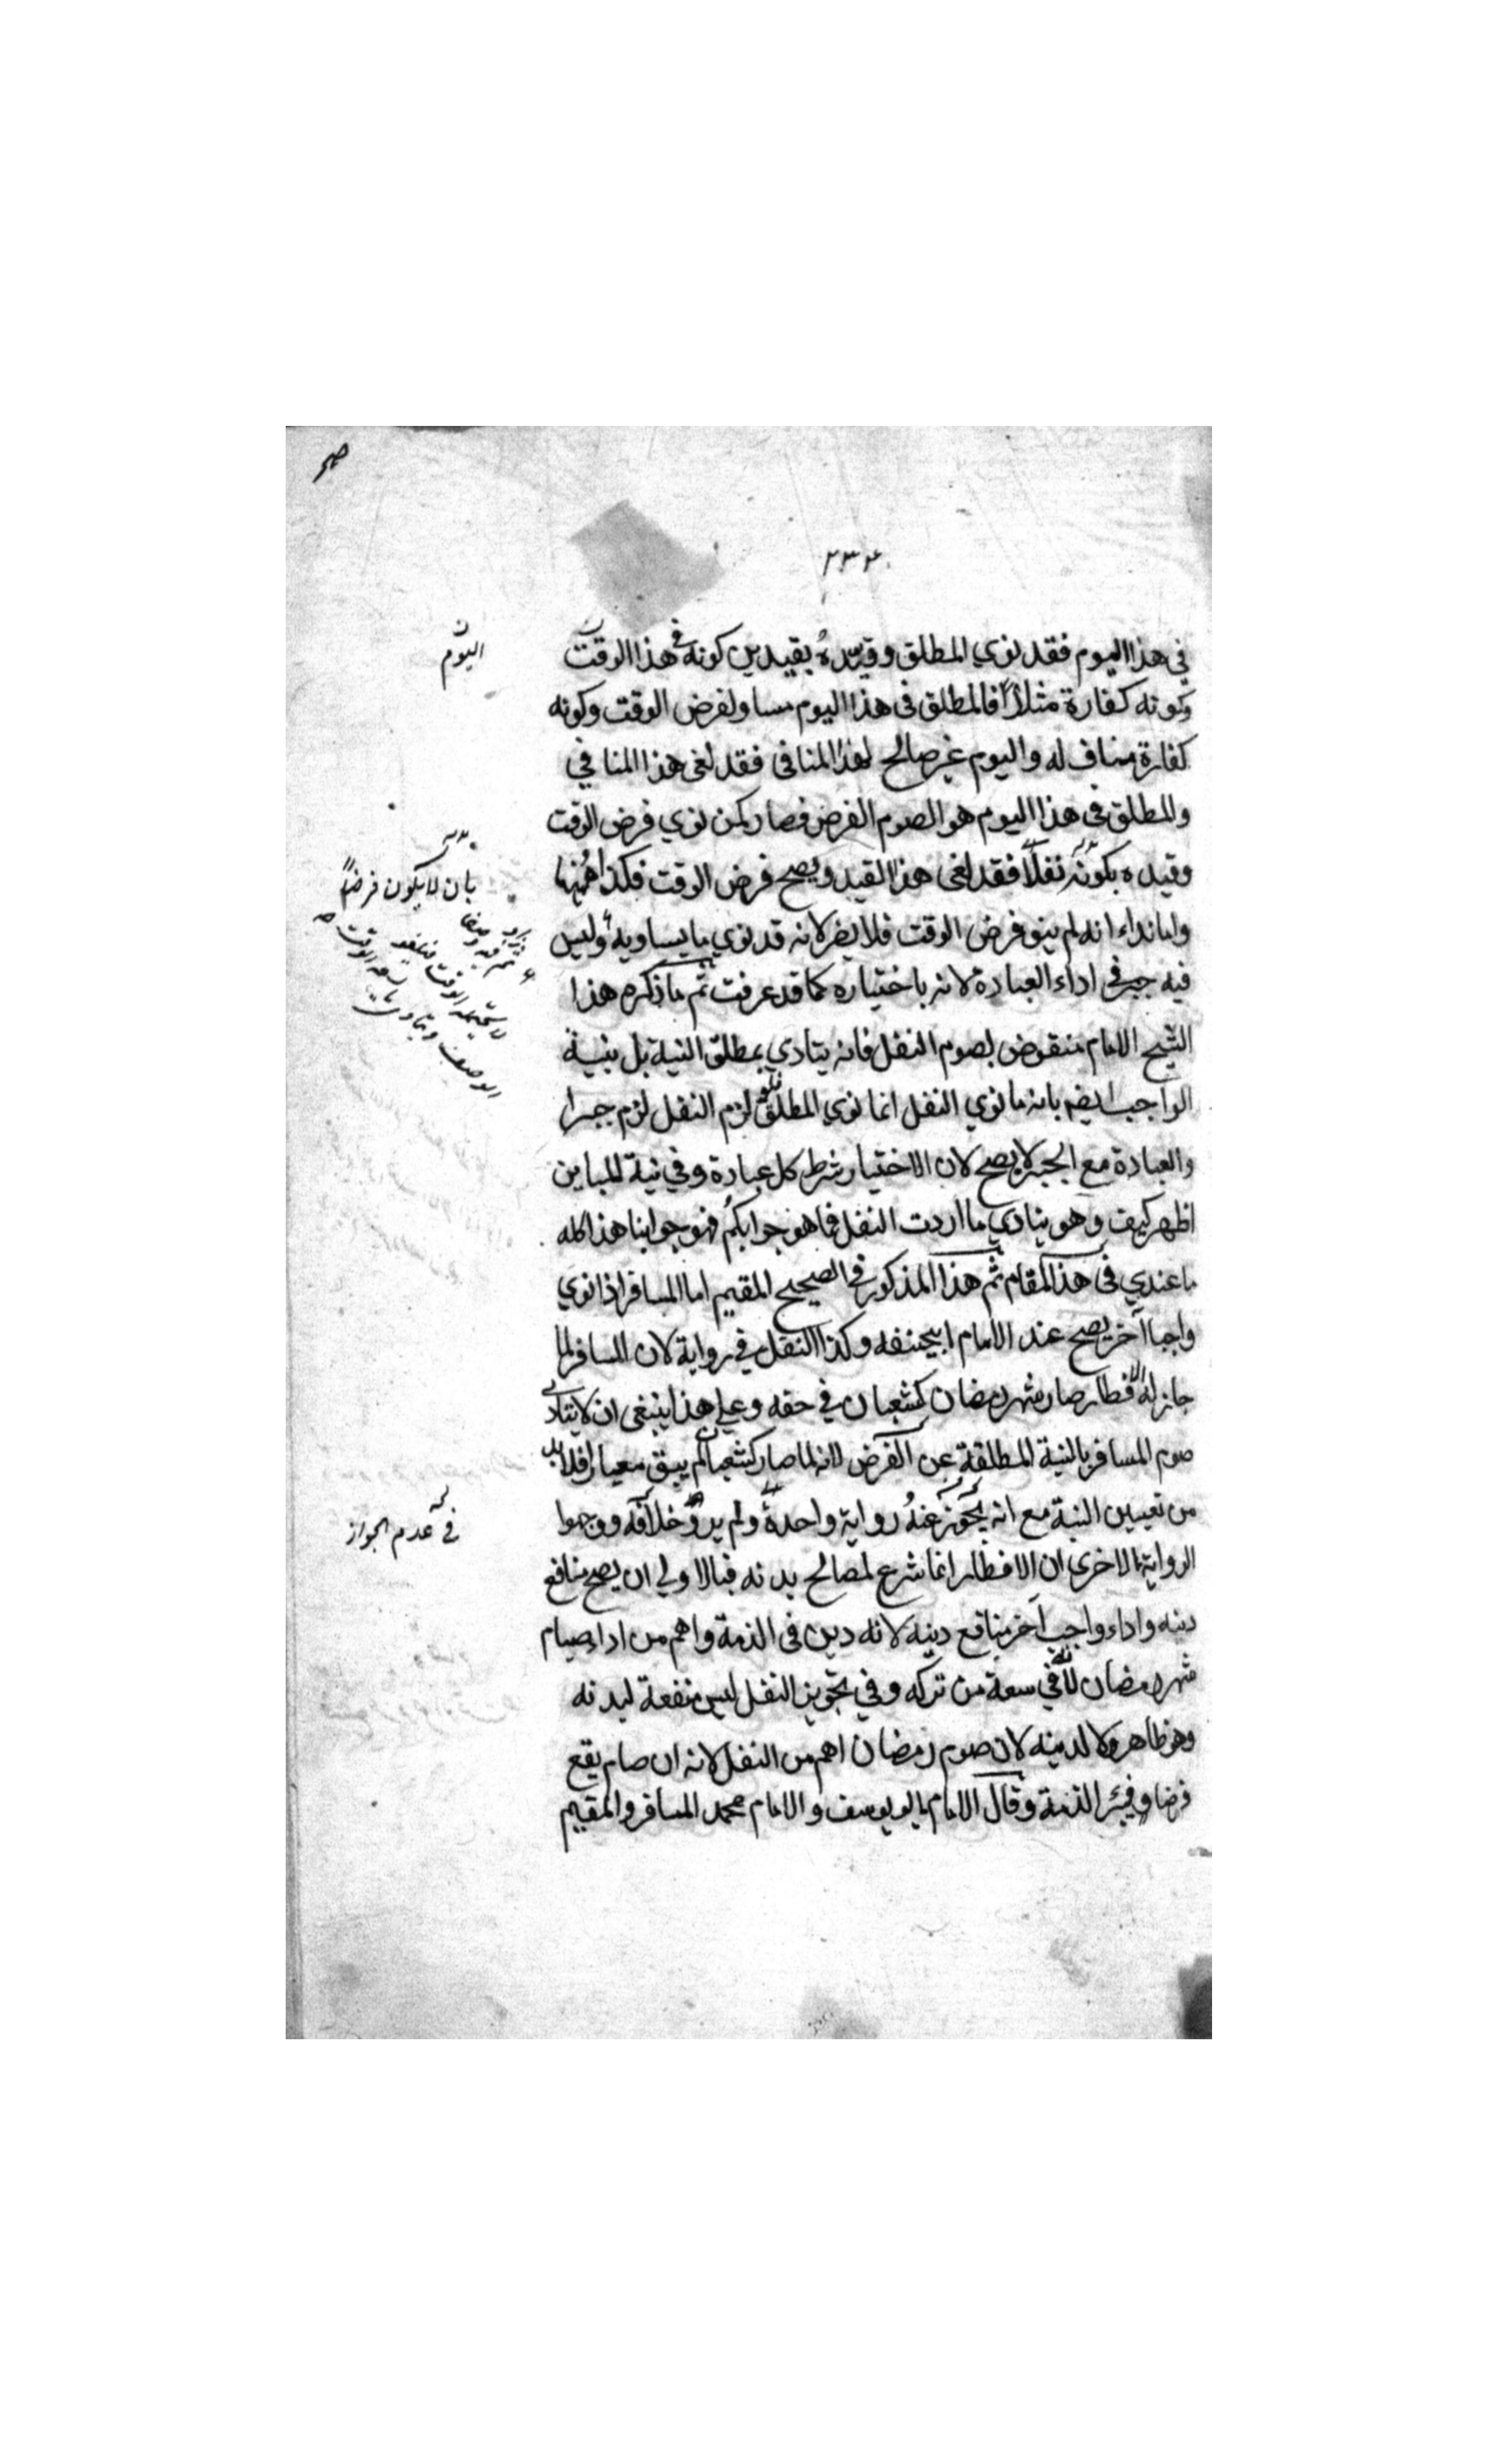 ٢٣٢
في هذا اليوم فقد نوي المطلق وقيده بقيدين كونه في هذا الوقت
وكونه كفارة مثلا فالمطلق فى هذا اليوم مساو لفرض الوقت وكونه
كفارة مناف له واليوم غير صالح لهذا المنافى فقد لغى هذا المنافي
والمطلق في هذا اليوم هو الصوم الفرض فصار كمن نوي فرض الوقت
وقيده بكونه نفلا فقد لغى هذا القيد ويصح فرض الوقت فكذا ههنا
واما نداءه انه لم ينو فرض الوقت فلا يضر لانه قد نوي ما يساويه وليس
فيه جبر في اداء العبادة لانه باختياره كما قد عرفت ثم ما ذكره هذا
الشيخ الامام منقوض بصوم النفل فانه يتادي بمطلق النية بل بنية
الواجب ايضا بانه ما نوي النفل انما نوي المطلق فلو لزم النفل لزم جبرا
والعبادة مع الجبر لا يصح لان الاختيار شرط كل عبادة وفي نية المباين
اظهر كيف وهو ينادي ما اردت النفل فما هو جوابكم فهو جوابنا هذا كله
ما عندي فى هذا المقام ثم هذا المذكور في الصحيح المقيم اما المسافر اذا نوي
واجبا آخر يصح عند الامام ابيحنيفه وكذا النفل في رواية لان المسافر لما
جاز له الافطار صار شهر رمضان كشعبان في حقه وعلي هذا ينبغي ان لا يتادى
صوم المسافر بالنية المطلقة عن الفرض لانه لما صار كشعبان لم يبق معيارا فلا بد
من تعيين النية مع انه يجوز عنه رواية واحدة ولم يرو خلافه ووجهوا
الرواية الاخرى ان الافطار انما شرع لمصالح بدنه فبالاولي ان يصح منافع
دينه واداء واجب آخر منافع دينه لانه دين فى الذمة واهم من اداء صيام
شهر رمضان لانه في سعة من تركه وفي تجويز النفل ليس منفعة لبدنه
وهو ظاهر ولا لدينه لان صوم رمضان اهم من النفل لانه ان صام يقع
فرضا وفي الذمة وقال الامام ابو يوسف والامام محمد المسافر والمقيم
اليوم
بان لا يكون فرضا
في عدم الجواز